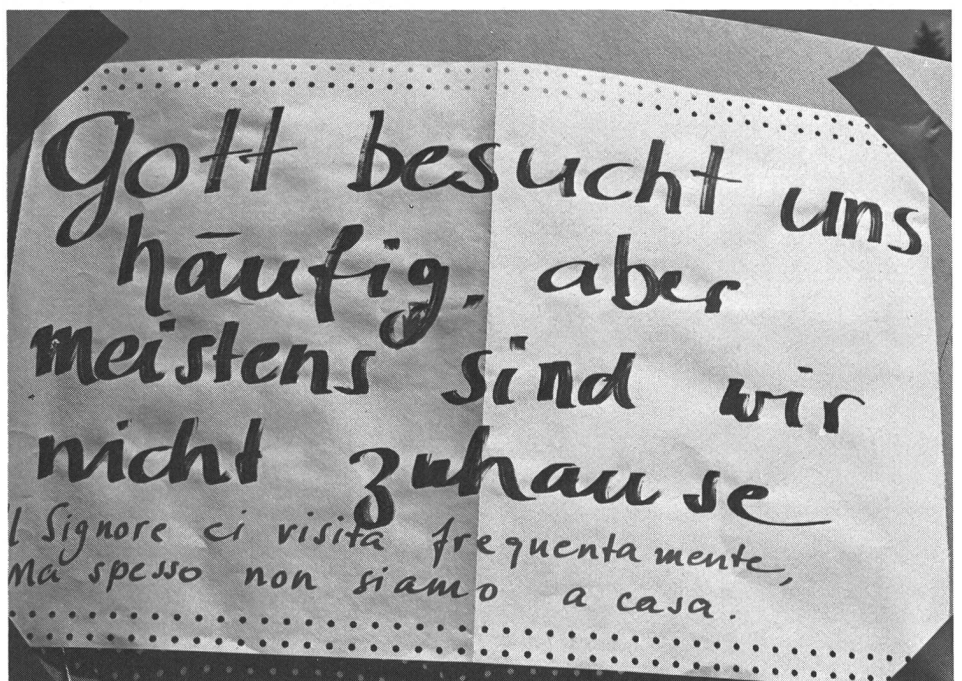 Gott besucht uns
häufig, aber
meistens sind wir
nicht zuhause
Il Signore ci visita frequentamente,
Ma spesso non siamo a casa.